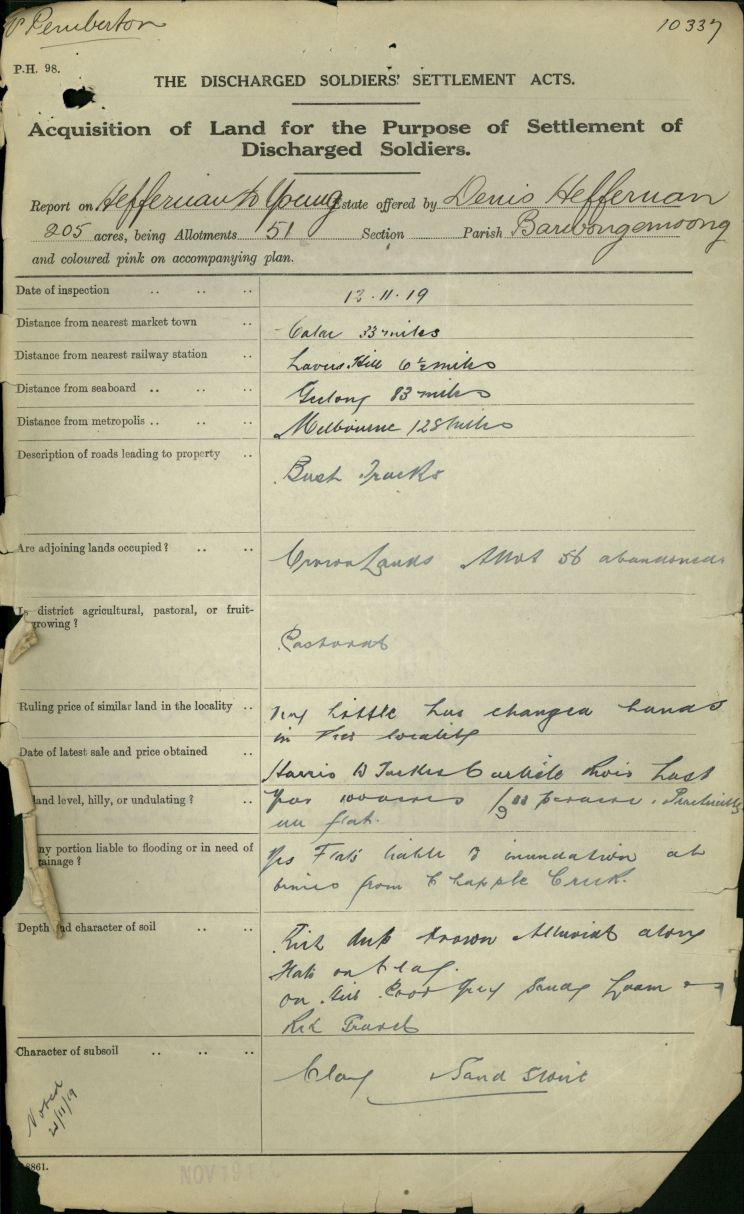 Pemberton
10337
P.H. 98.
THE DISCHARGED SOLDIERS' SETTLEMENT ACTS.
Acquisition of Land for the Purpose of Settlement of
Discharged Soldiers.
Report on Heffernan to Young Estate offered by Denis Heffernan
205 acres, being Allotments 51 Section Parish Barwongemoong
and coloured pink on accompanying plan.
Date of inspection .. .. .. 12.11.19
Distance from nearest market town .. Colac 33 miles
Distance from nearest railway station Lavers Hill 6½ miles
Distance from seaboard .. .. .. Geelong 83 miles
Distance from metropolis .. .. .. Melbourne 128 miles
Description of roads leading to property .. Bush Tracks
Are adjoining lands occupied? .. .. Crown Lands Allot 56 abandoned
Is district agricultural, pastoral, or fruit-
growing?
Pastoral
Ruling price of similar land in the locality .. Very little has changed hands
in this locality
Date of latest sale and price obtained ..
Harris to Carlisle River Last
land level, hilly, or undulating? ..
Year 100 acres per acre. Practically
all flat.
ny portion liable to flooding or in need of
ainage?
Yes Flats liable to inundation at
times from Chapple Creek.
Depth and character of soil .. ..
Rich deep brown Alluvial along
flats on Clay.
on Poor Grey Sandy Loam
Red Gravel
Character of subsoil .. .. .. Clay Sand Stone
Noted
21/11/19
8861.
NOV 19